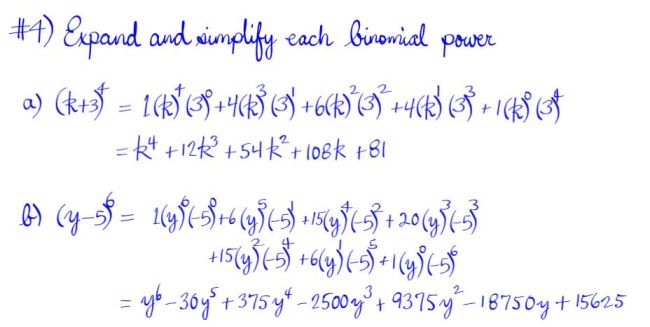 #4) Expand and simplify each binomial power
a) (k+3)⁴ = 1(k)⁴(3)⁰+4(k)³(3)¹+6(k)²(3)²+4(k)¹(3)³+1(k)⁰(3)⁴
= k⁴+12k³+54k²+108k+81
b) (y-5)⁶ = 1(y)⁶(-5)⁰+6(y)⁵(-5)¹+15(y)⁴(-5)²+20(y)³(-5)³
+15(y)²(-5)⁴+6(y)¹(-5)⁵+1(y)⁰(-5)⁶
= y⁶-30y⁵+375y⁴-2500y³+9375y²-18750y+15625